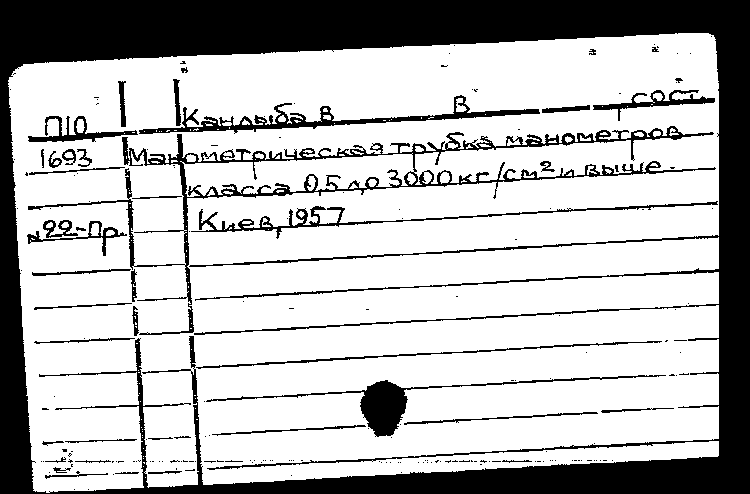 П10 Кандыба, В В , сост.
1693 Манометрическая трубка манометров
класса 0,5 до 3000 кг/см² и выше.
№22-Пр. Киев, 1957